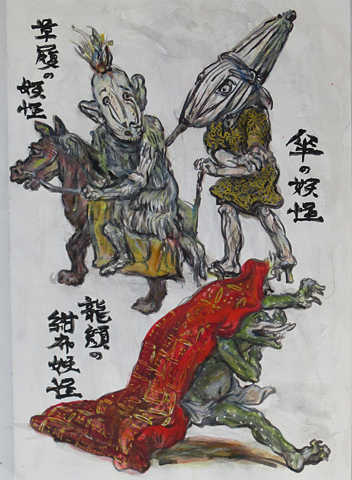 草履の
妖怪
傘の妖怪
龍頭の
紺布妖怪